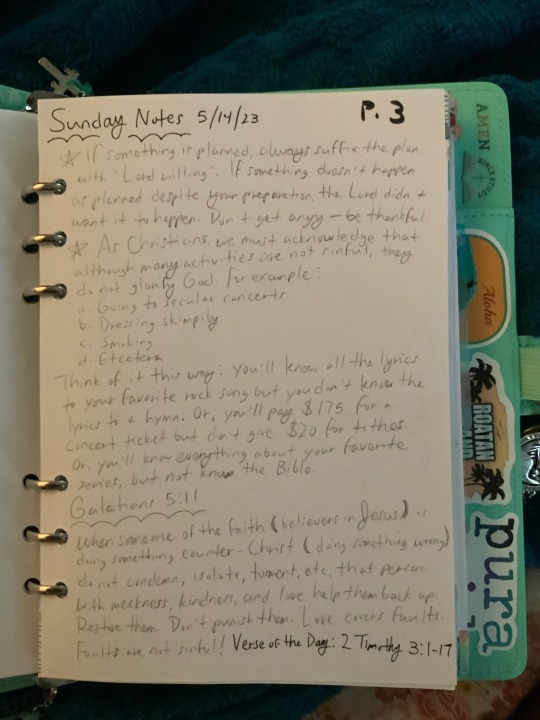 Sunday Notes 5/14/23 P. 3
☆ If something is planned, always suffix the plan
with "Lord willing". If something doesn't happen
as planned despite your preparation, the Lord didn't
want it to happen. Don't get angry – be thankful.
☆ As Christians, we must acknowledge that
although many activities are not sinful, they
do not glorify God. For example:
a. Going to secular concerts
b. Dressing skimpily
c. Smoking
d. Etcetera
Think of it this way: you'll know all the lyrics
to your favorite rock song but you don't know the
lyrics to a hymn. Or, you'll pay $175 for a
concert ticket but don't give $20 for tithes.
Or, you'll know everything about your favorite
series, but not know the Bible.
Galatians 5:11
When someone of the faith (believers in Jesus) is
doing something counter-Christ (doing something wrong)
do not condemn, isolate, torment, etc, that person.
With meekness, kindness, and love help them back up.
Restore them. Don't punish them. Love covers faults.
Faults are not sinful! Verse of the Day: 2 Timothy 3:1-17
AMEN
BIBLE STUDY
Aloha
ROATAN
pura